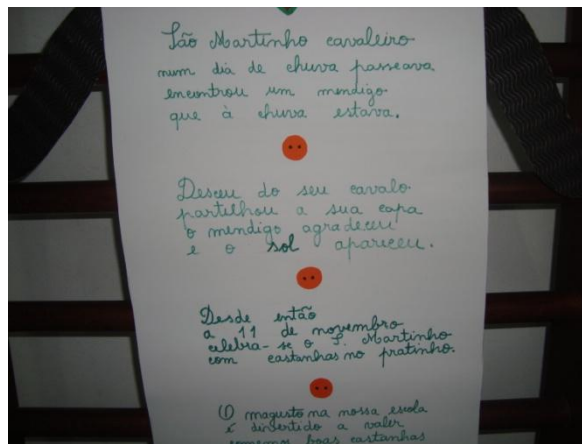 São Martinho cavaleiro
num dia de chuva passeava
encontrou um mendigo
que à chuva estava.
Desceu do seu cavalo
partilhou a sua capa
o mendigo agradeceu
e o sol apareceu.
Desde então
a 11 de novembro
celebra-se o S. Martinho
com castanhas no pratinho.
O magusto na nossa escola
é divertido a valer
comemos boas castanhas